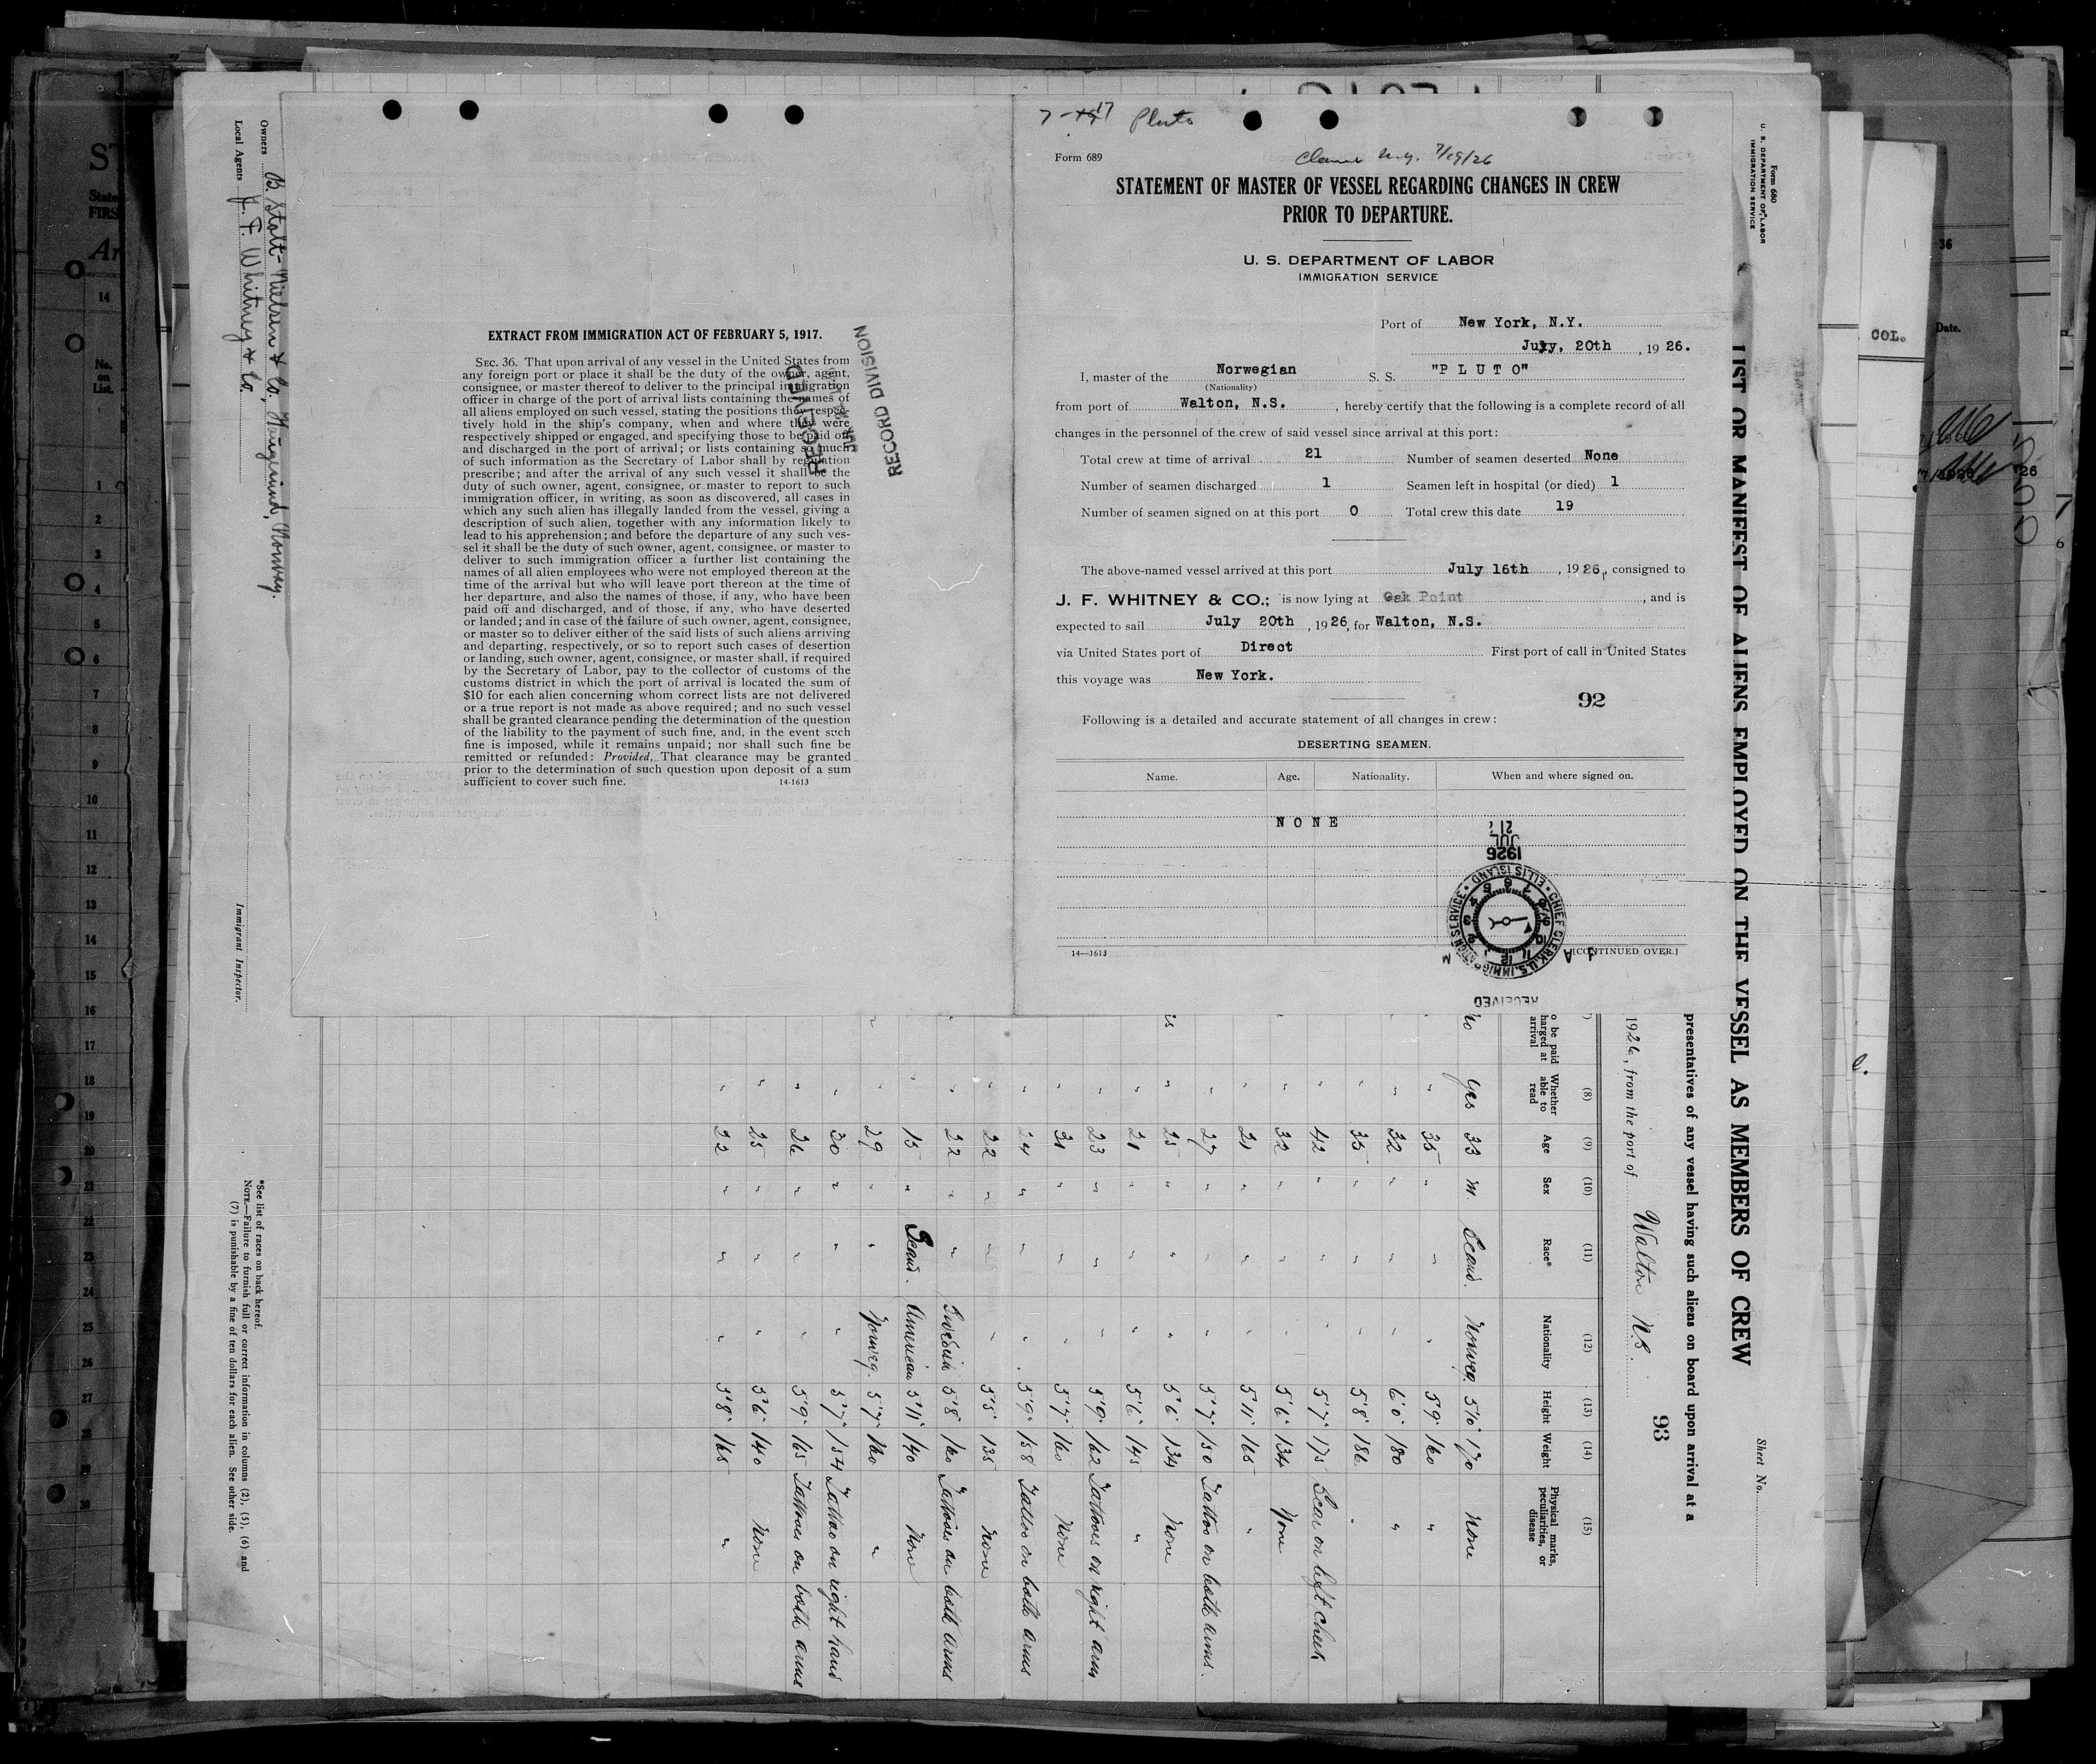 7-17 Pluto
Form 689
7/19/26
STATEMENT OF MASTER OF VESSEL REGARDING CHANGES IN CREW
PRIOR TO DEPARTURE.
U. S. DEPARTMENT OF LABOR
IMMIGRATION SERVICE
Port of New York, N.Y.
July, 20th, 1926.
I, master of the Norwegian S. S. "P L U T O"
(Nationality)
from port of Walton, N.S., hereby certify that the following is a complete record of all
changes in the personnel of the crew of said vessel since arrival at this port:
Total crew at time of arrival 21 Number of seamen deserted None
Number of seamen discharged 1 Seamen left in hospital (or died) 1
Number of seamen signed on at this port 0 Total crew this date 19
The above-named vessel arrived at this port July 16th, 1926, consigned to
J. F. WHITNEY & CO.; is now lying at Oak Point, and is
expected to sail July 20th, 1926, for Walton, N.S.
via United States port of Direct First port of call in United States
this voyage was New York.
92
Following is a detailed and accurate statement of all changes in crew:
DESERTING SEAMEN.
Name. Age. Nationality. When and where signed on.
N O N E
14—1613 [CONTINUED OVER.]
1926
JUL
21
CHIEF CLERK, U.S. IMMIGRATION SERVICE • ELLIS ISLAND •
RECEIVED
EXTRACT FROM IMMIGRATION ACT OF FEBRUARY 5, 1917.
SEC. 36. That upon arrival of any vessel in the United States from
any foreign port or place it shall be the duty of the owner, agent,
consignee, or master thereof to deliver to the principal immigration
officer in charge of the port of arrival lists containing the names of
all aliens employed on such vessel, stating the positions they respec-
tively hold in the ship's company, when and where they were
respectively shipped or engaged, and specifying those to be paid off
and discharged in the port of arrival; or lists containing so much
of such information as the Secretary of Labor shall by regulation
prescribe; and after the arrival of any such vessel it shall be the
duty of such owner, agent, consignee, or master to report to such
immigration officer, in writing, as soon as discovered, all cases in
which any such alien has illegally landed from the vessel, giving a
description of such alien, together with any information likely to
lead to his apprehension; and before the departure of any such ves-
sel it shall be the duty of such owner, agent, consignee, or master to
deliver to such immigration officer a further list containing the
names of all alien employees who were not employed thereon at the
time of the arrival but who will leave port thereon at the time of
her departure, and also the names of those, if any, who have been
paid off and discharged, and of those, if any, who have deserted
or landed; and in case of the failure of such owner, agent, consignee,
or master so to deliver either of the said lists of such aliens arriving
and departing, respectively, or so to report such cases of desertion
or landing, such owner, agent, consignee, or master shall, if required
by the Secretary of Labor, pay to the collector of customs of the
customs district in which the port of arrival is located the sum of
$10 for each alien concerning whom correct lists are not delivered
or a true report is not made as above required; and no such vessel
shall be granted clearance pending the determination of the question
of the liability to the payment of such fine, and, in the event such
fine is imposed, while it remains unpaid; nor shall such fine be
remitted or refunded: Provided, That clearance may be granted
prior to the determination of such question upon deposit of a sum
sufficient to cover such fine. 14-1613
RECEIVED
RECORD DIVISION
Form 680
U. S. DEPARTMENT OF LABOR
IMMIGRATION SERVICE
Sheet No.
LIST OR MANIFEST OF ALIENS EMPLOYED ON THE VESSEL AS MEMBERS OF CREW
presentatives of any vessel having such aliens on board upon arrival at a
93
1926, from the port of Walton N.S.
(8) (9) (10) (11) (12) (13) (14) (15)
o be paid
harged at
arrival
Whether able to read Age Sex Race* Nationality Height Weight Physical marks, peculiarities, or disease
no yes 33 m Scand. Norweg. 5'10" 170 None
" 35 " " " 5'9" 160 "
" 32 " " " 6'0" 180 "
" 35 " " " 5'8" 186 "
" 42 " " " 5'7" 175 Scar on left cheek
" 32 " " " 5'6" 134 None
" 21 " " " 5'11" 165 "
" 27 " " " 5'7" 150 Tattos on both arms.
" 25 " " " 5'6" 134 None
" 21 " " " 5'6" 145 "
" 23 " " " 5'9" 162 Tattoos on right arm
" 31 " " " 5'7" 160 None
" 24 " " " 5'9" 158 Tattos on both arms
" 22 " " " 5'5" 135 None
" 22 " " Swedish 5'8" 160 Tattoes on both arms
" 15 " Scand. American 5'11" 140 None
" 29 " " Norweg. 5'7" 160 "
" 30 " " " 5'7" 154 Tattoo on right hand
" 26 " " " 5'9" 165 Tattoes on both arms
" 25 " " " 5'6" 140 None
" 22 " " " 5'8" 165 "
Owners B. Stolt-Nielsen & Co, Haugesund, Norway.
Local Agents J. F. Whitney & Co.
Immigrant Inspector.
*See list of races on back hereof.
NOTE.—Failure to furnish full or correct information in columns (2), (5), (6) and
(7) is punishable by a fine of ten dollars for each alien. See other side.
State
FIRS
14
No.
on
List.
1
2
3
4
5
6
7
8
9
10
11
12
13
14
15
16
17
18
19
20
21
22
23
24
25
26
27
28
29
30
COL.
36
Date.